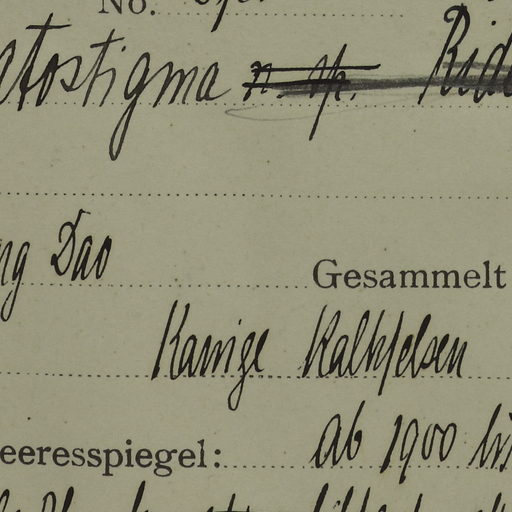 No.
atostigma n. sp. Rid
ng Dao
Gesammelt
Kantige Kalkfelsen
eeresspiegel: ab 1900 bis